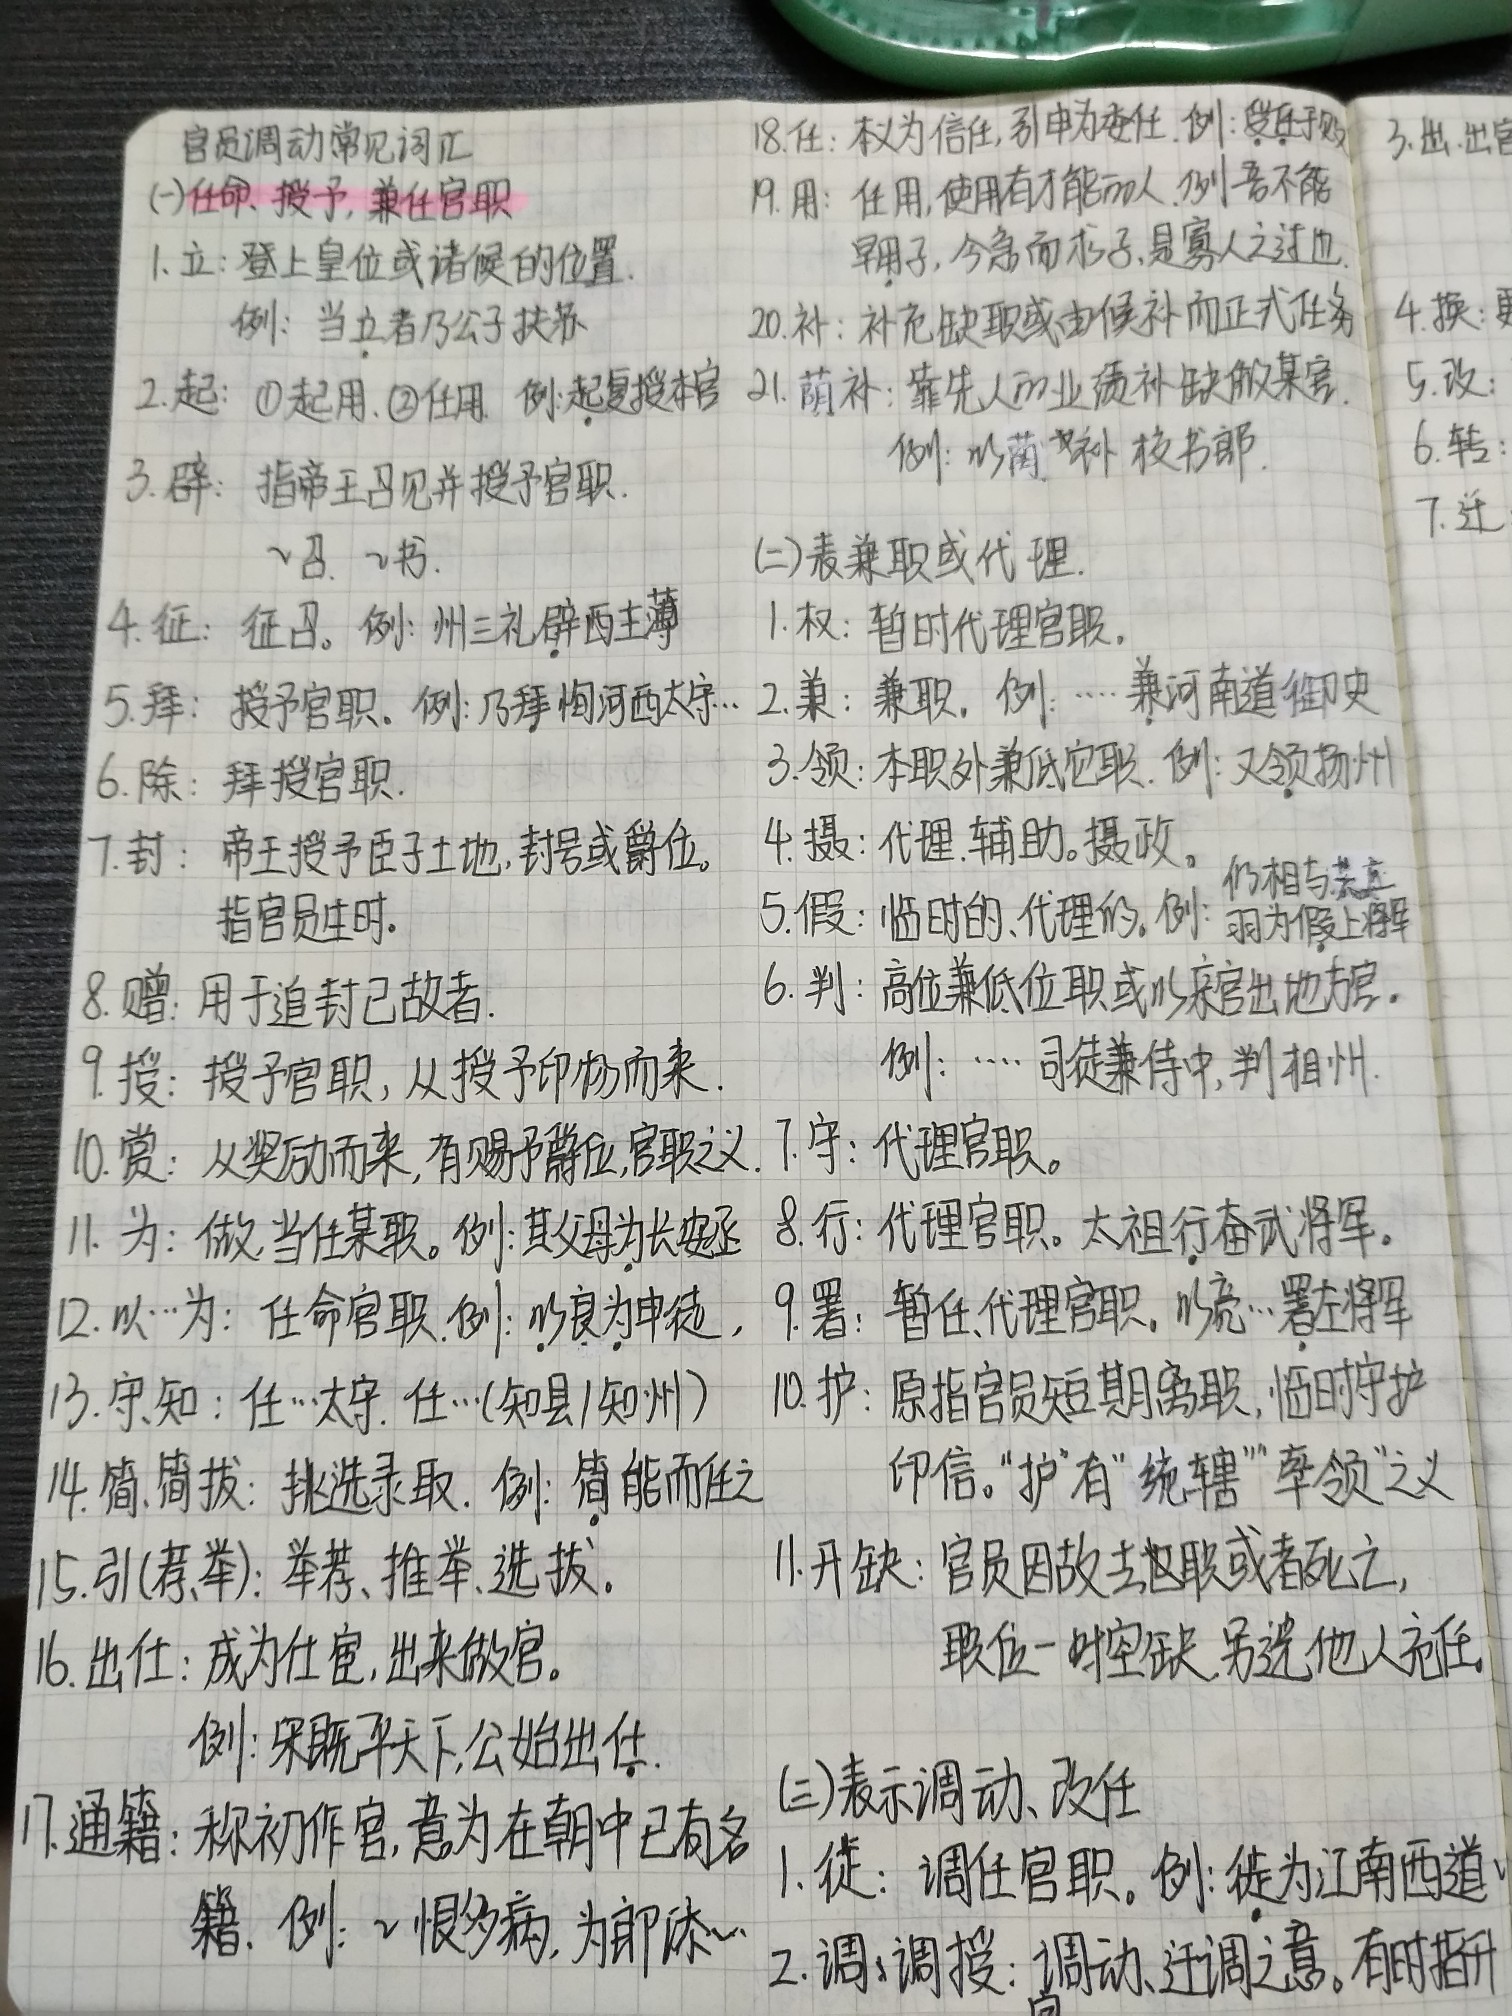 官员调动常见词汇
(一)任命、授予，兼任官职
1.立：登上皇位或诸侯的位置.
例：当立者乃公子扶苏
2.起：①起用.②任用. 例:起复授本官
3.辟：指帝王召见并授予官职.
~召. ~书.
4.征：征召。例：州三礼辟西主薄
5.拜：授予官职。例:乃拜恂河西太守…
6.除：拜授官职.
7.封：帝王授予臣子土地,封号或爵位。
指官员生时。
8.赠:用于追封已故者.
9.授：授予官职，从授予印物而来.
10.赏：从奖励而来,有赐予爵位,官职之义.
11.为：做,当任某职。例:其父母为长安丞
12.以…为：任命官职.例：以良为申徒，
13.守、知：任…太守. 任…(知县/知州)
14.简、简拔：挑选录取. 例：简能而任之
15.引(荐、举)：举荐、推举、选拔。
16.出仕：成为仕宦,出来做官。
例：宋既平天下,公始出仕.
17.通籍：称初作官,意为在朝中已有名
籍. 例：~恨多病,为郎忝…
18.任：本义为信任,引申为委任.例：受任于败
19.用：任用,使用有才能的人.例 吾不能
早用子，今急而求子,是寡人之过也.
20.补：补充缺职或由候补而正式任务
21.荫补：靠先人的业绩补缺做某官.
例：以荫补 校书郎.
(二)表兼职或代理.
1.权：暂时代理官职.
2.兼：兼职. 例：….兼河南道御史
3.领：本职外兼低它职. 例：又领扬州
4.摄：代理.辅助。摄政。
5.假：临时的、代理的。例：仍相与共立
羽为假上将军
6.判：高位兼低位职或以京官出地方官.
例：…. 司徒兼侍中,判相州.
7.守：代理官职。
8.行：代理官职。太祖行奋武将军。
9.署：暂任、代理官职。以亮…署左将军
10.护：原指官员短期离职,临时守护
印信。“护”有“统辖”“率领”之义
11.开缺：官员因故去职或者死亡,
职位一时空缺.另选他人充任。
(三)表示调动、改任
1.徙：调任官职。例：徙为江南西道
2.调、调授：调动、迁调之意。有时指升
官
3.出.出官
4.换：
5.改：
6.转：
7.迁